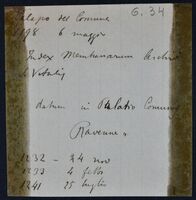 6.34
del Comune
198 6 maggio
Index Membranarum Archivi
S. Vitalis
datum in Palatio Comunis
Ravenne
1232 - 24 nov
1233 4 febr
1241 25 luglio